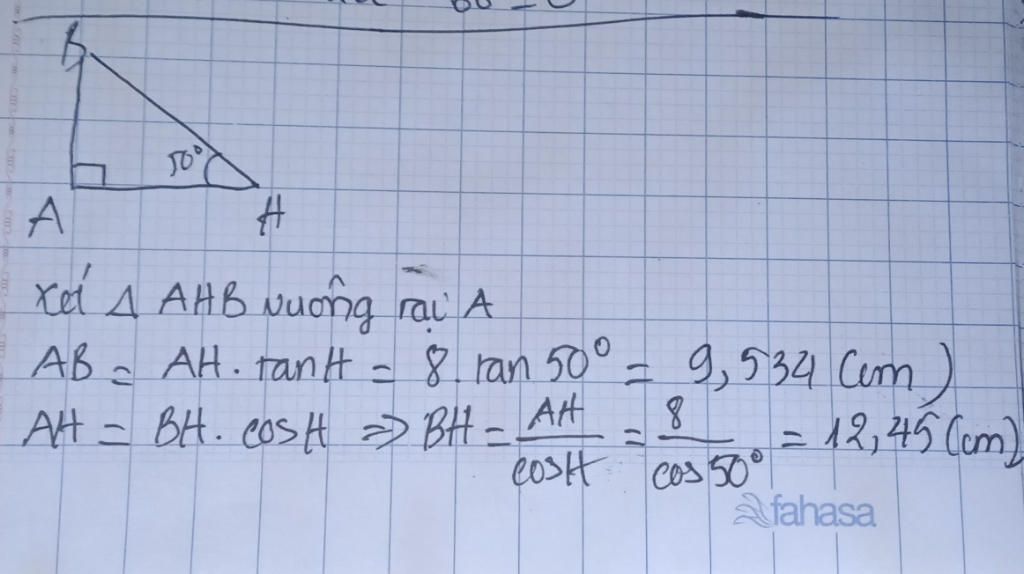 B
50°
A H
Xét Δ AHB vuông tại A
AB = AH . tan H = 8 . tan 50° = 9,534 (cm)
AH = BH . cos H ⇒ BH = AH / cos H = 8 / cos 50° = 12,45 (cm)
fahasa